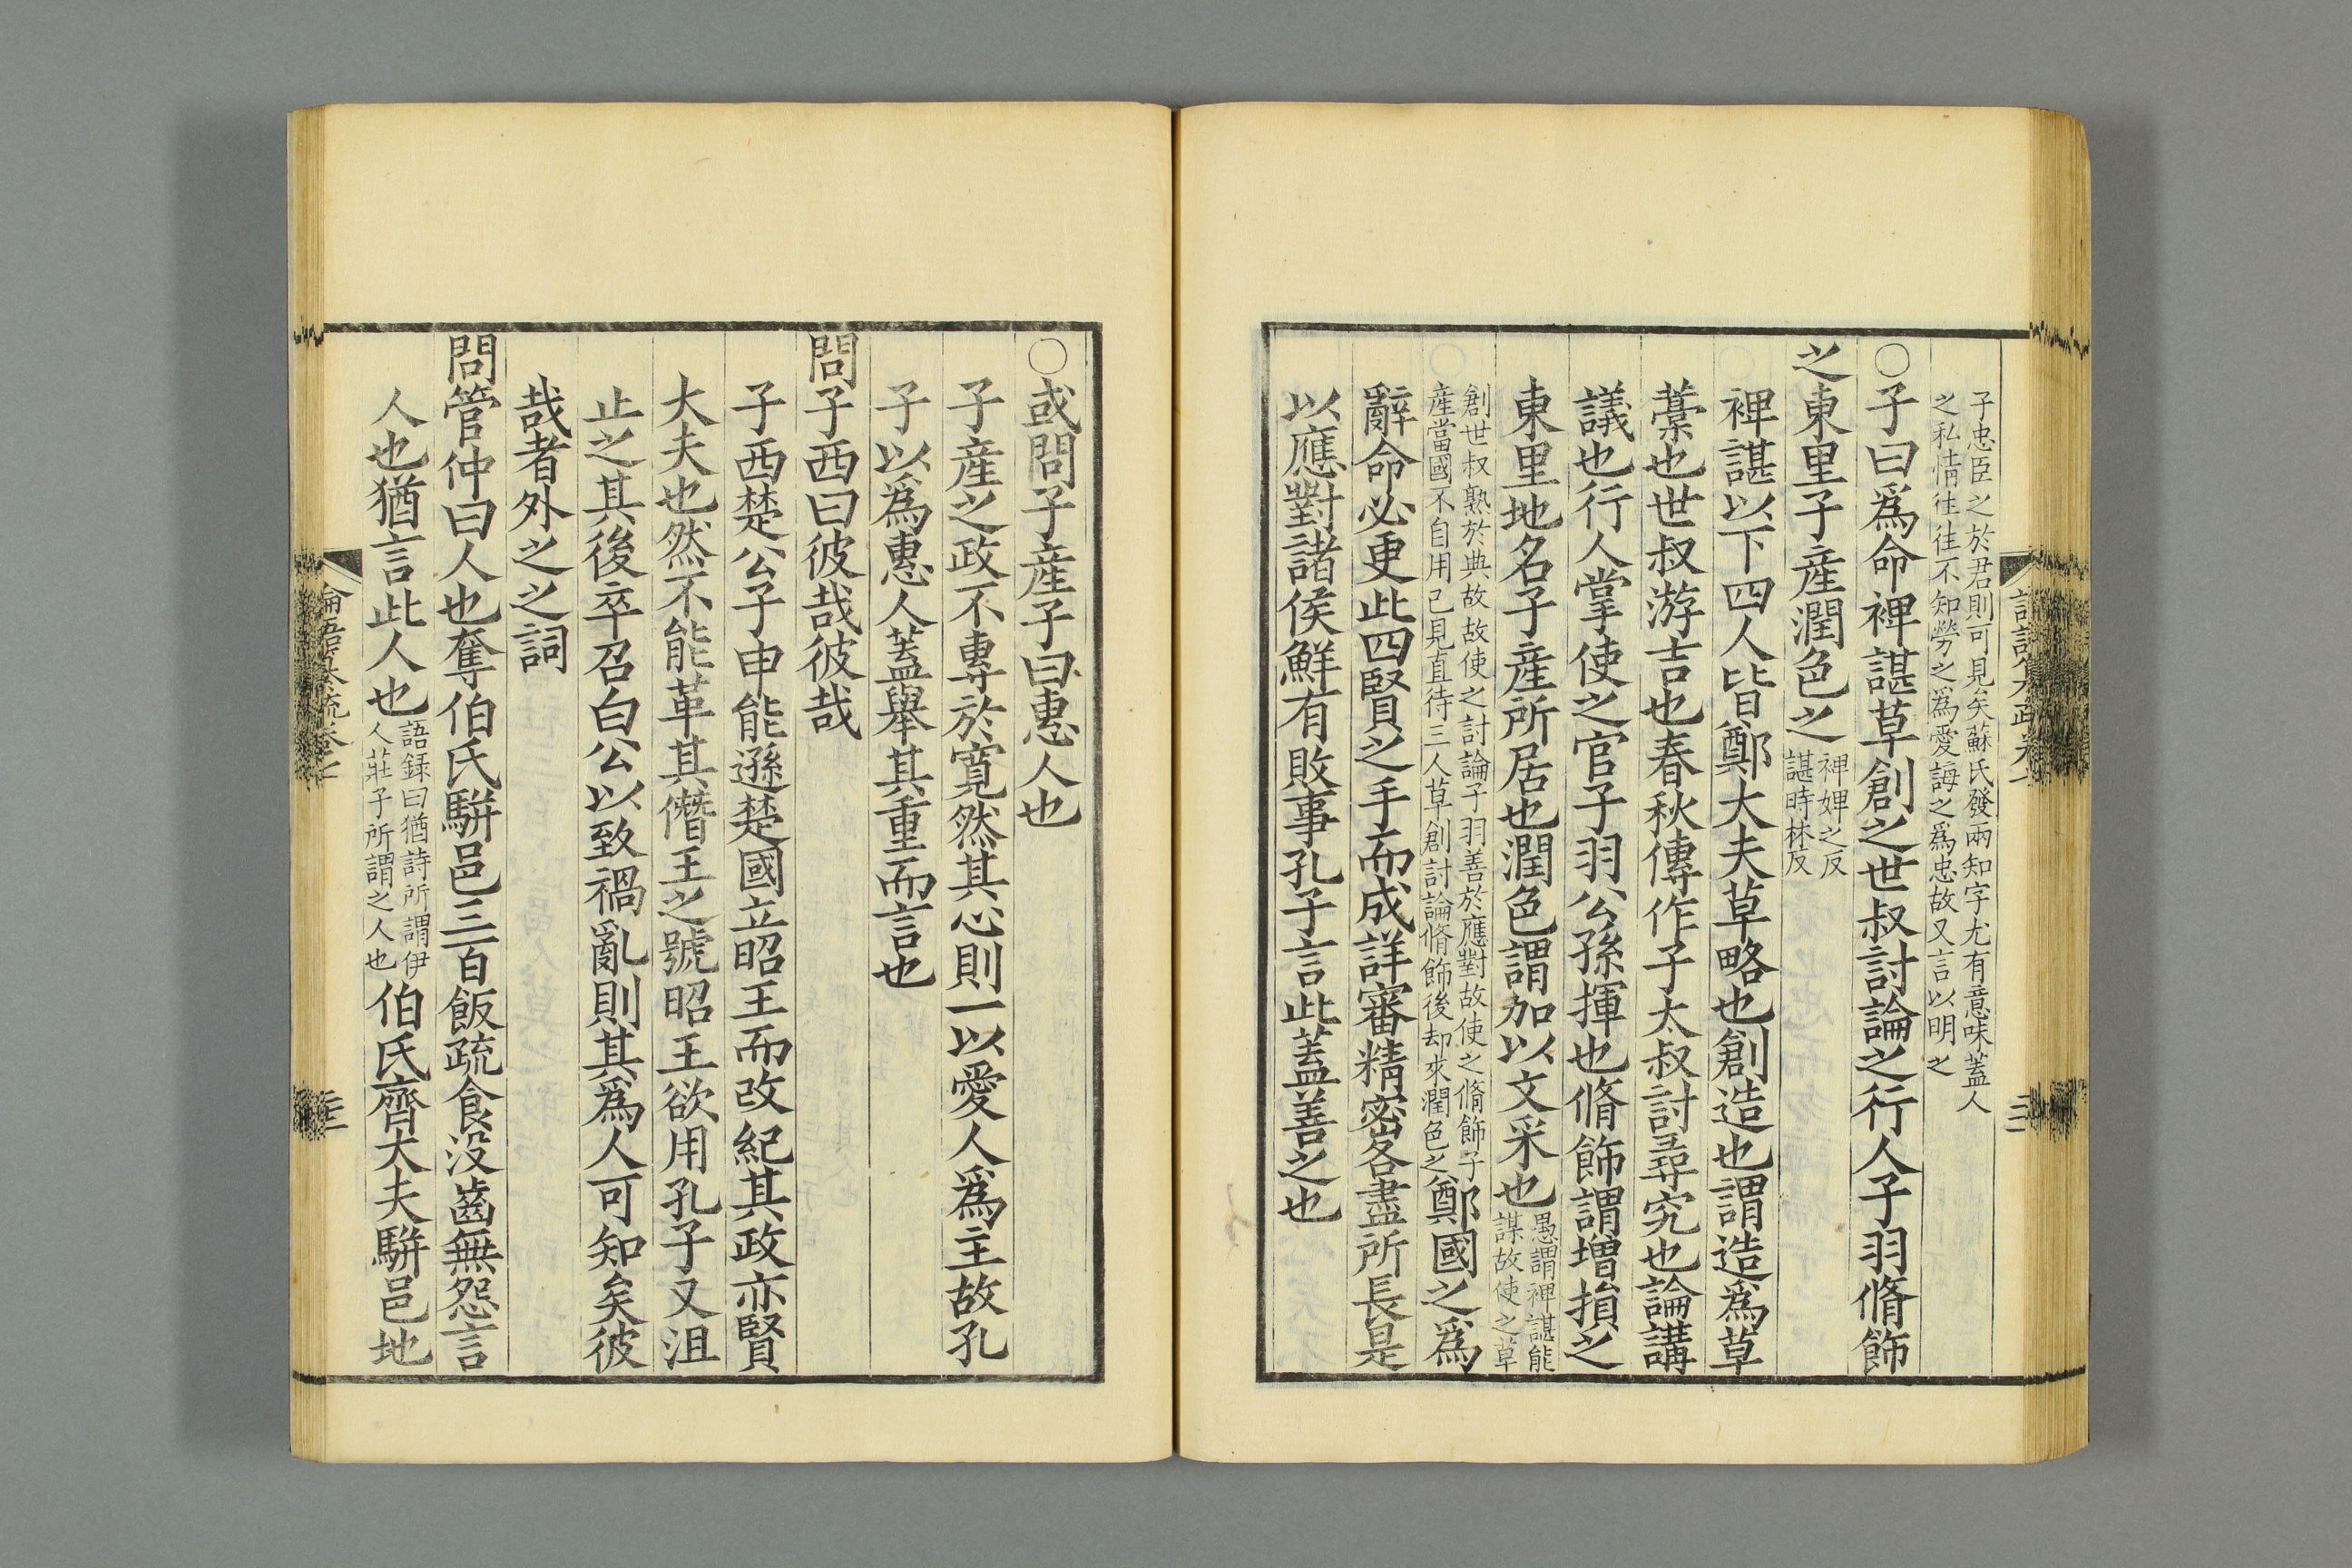 子忠臣之於君則可見矣蘇氏發兩知字尤有意味蓋人
之私情往往不知勞之爲愛誨之爲忠故又言以明之
○子曰爲命裨諶草創之世叔討論之行人子羽脩飾
之東里子産潤色之裨婢之反諶時林反
裨諶以下四人皆鄭大夫草略也創造也謂造爲草
藁也世叔游吉也春秋傳作子太叔討尋究也論講
議也行人掌使之官子羽公孫揮也脩飾謂增損之
東里地名子産所居也潤色謂加以文采也愚謂裨諶能謀故使之草
創世叔熟於典故故使之討論子羽善於應對故使之脩飾子産當國不自用己見直待三人草創討論脩飾後却來潤色之鄭國之爲
辭命必更此四賢之手而成詳審精密各盡所長是
以應對諸侯鮮有敗事孔子言此蓋善之也
三
○或問子産子曰惠人也
子産之政不專於寛然其心則一以愛人爲主故孔
子以爲惠人蓋舉其重而言也
問子西曰彼哉彼哉
子西楚公子申能遜楚國立昭王而改紀其政亦賢
大夫也然不能革其僭王之號昭王欲用孔子又沮
止之其後卒召白公以致禍亂則其爲人可知矣彼
哉者外之之詞
問管仲曰人也奪伯氏騈邑三百飯疏食没齒無怨言
人也猶言此人也語録曰猶詩所謂伊人莊子所謂之人也伯氏齊大夫騈邑地